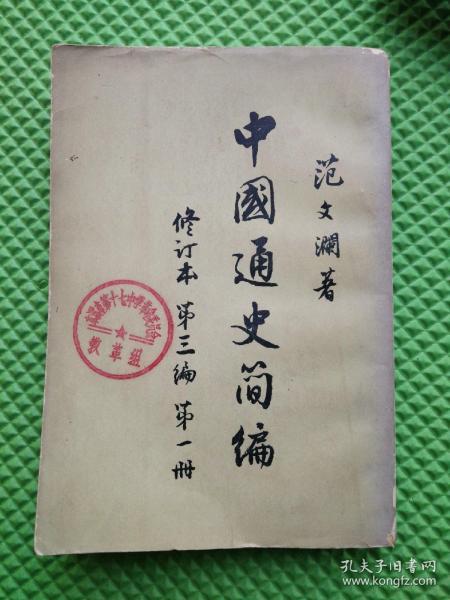 范文瀾著
中國通史简编
修订本 第三编 第一册
教革组
孔夫子旧书网
www.kongfz.com